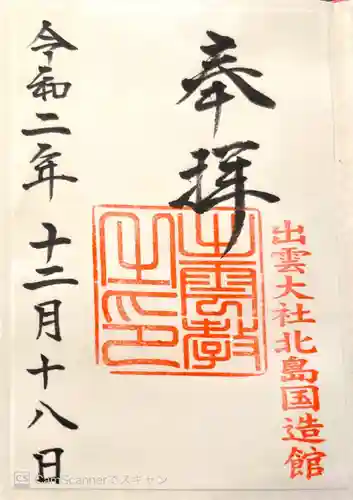 出雲大社北島国造館
奉拝
出雲教之印
令和二年十二月十八日
CS CamScannerでスキャン